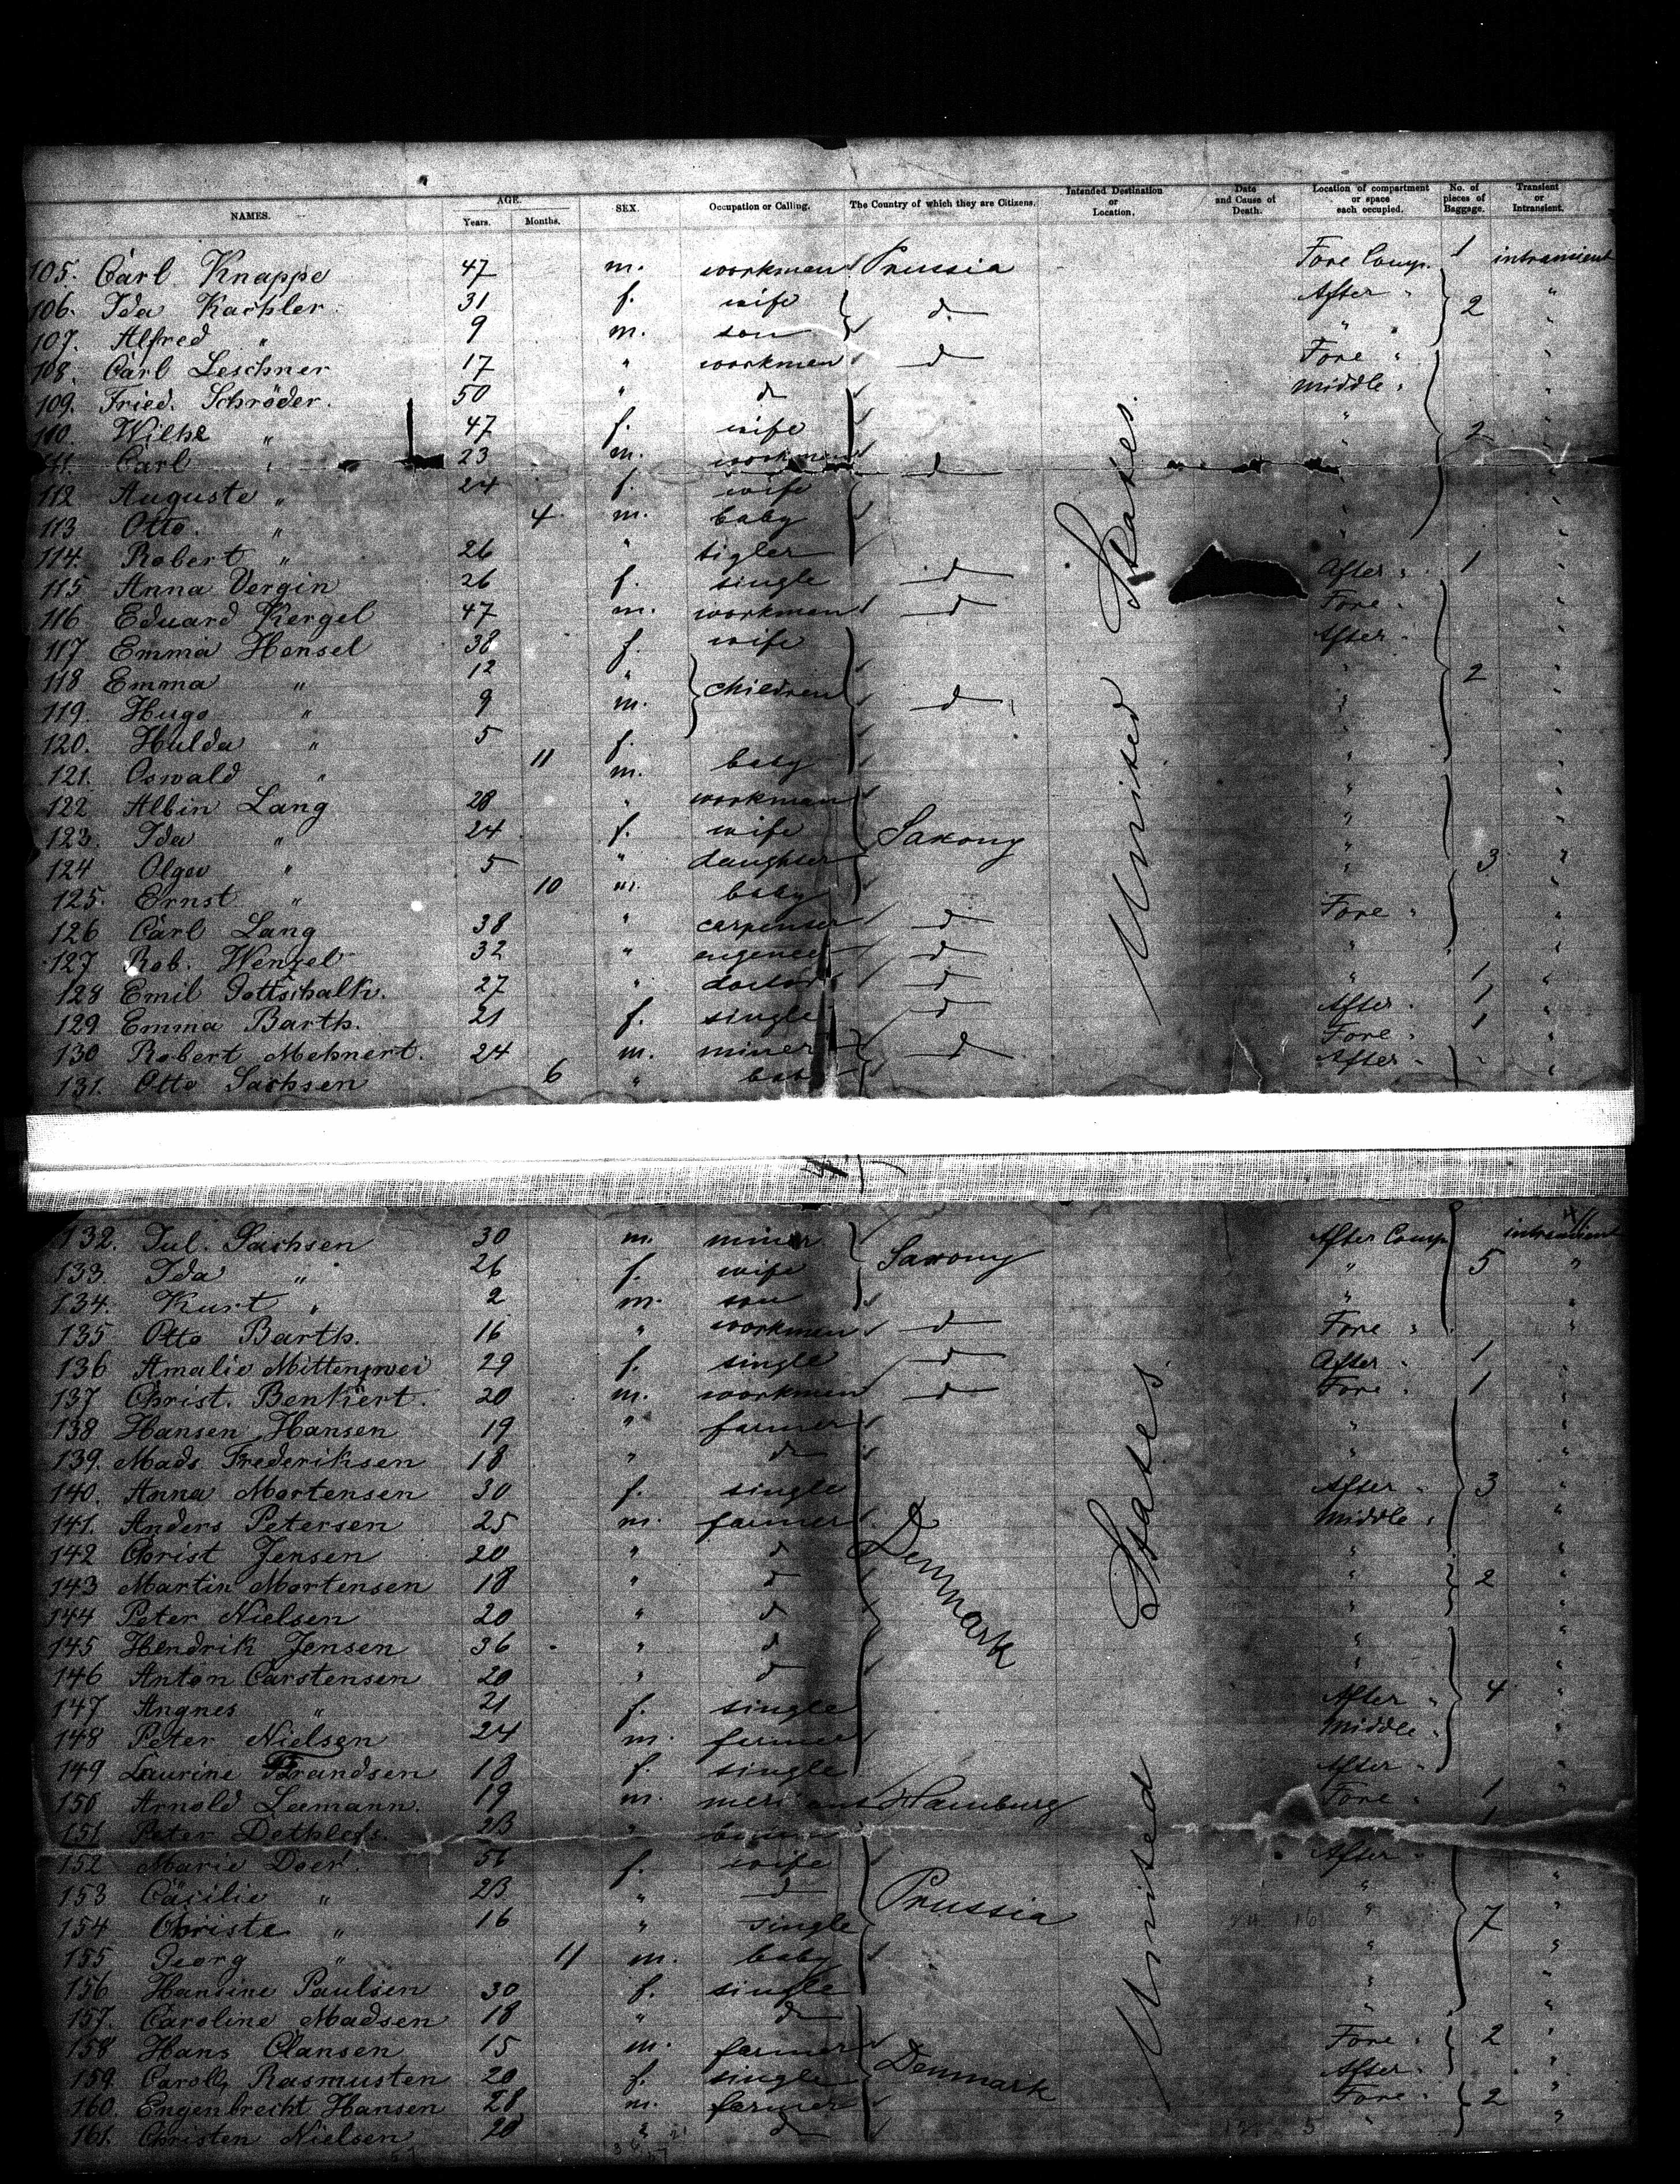 NAMES. AGE. Years. Months. SEX. Occupation or Calling. The Country of which they are Citizens. Intended Destination or Location. Date and Cause of Death. Location of compartment or space each occupied. No. of pieces of Baggage. Transient or Intransient.
105. Carl Knappe 47 m. workman Prussia Fore Comp. 1 intransient
106. Ida Kachler 31 f. wife d. After " 2 "
107. Alfred " 9 m. son " " "
108. Carl Leschner 17 " workman d Fore " "
109. Fried. Schröder. 50 " d middle " "
110. Wilhe " 47 f. wife " 2 "
111. Carl " 23 m. workman d " "
112 Auguste " 24 f. wife "
113 Otto. " 4 m. baby " "
114. Robert " 26 " tigler " "
115 Anna Vergin 26 f. single d After " 1 "
116 Eduard Kergel 47 m. workman d Fore " "
117 Emma Hensel 38 f. wife After " "
118 Emma " 12 " children " 2 "
119. Hugo " 9 m. d " "
120. Hulda " 5 f. "
121. Oswald " 11 m. baby " "
122 Albin Lang 28 " workman " "
123. Ida " 24 f. wife Saxony " "
124 Olga " 5 " daughter " 3 "
125. Ernst " 10 m. baby " "
126 Carl Lang 38 " carpenter d Fore " "
127 Rob. Wenzel 32 " engeneer d " "
128 Emil Gottschalk. 27 " doctor d " 1 "
129 Emma Barth. 21 f. single d After " 1 "
130 Robert Mehnert. 24 m. miner d Fore " 1 "
131. Otto Sachsen 6 " baby After " "
United States.
132. Jul. Sachsen 30 m. miner Saxony After Comp. intransient
133. Ida " 26 f. wife " 5 "
134. Kurt " 2 m. son " "
135 Otto Barth. 16 " workman d Fore " "
136 Amalie Mittenzwei 29 f. single d After " 1 "
137 Christ. Benkert. 20 m. workman d Fore " 1 "
138 Hansen Hansen 19 " farmer " "
139. Mads Frederiksen 18 " d " "
140. Anna Mortensen 30 f. single After " 3 "
141. Anders Petersen 25 m. farmer Denmark Middle " "
142 Christ Jensen 20 " d " "
143 Martin Mortensen 18 " d " 2 "
144 Peter Nielsen 20 " d " "
145 Hendrik Jensen 36 " d " "
146 Anton Carstensen 20 " d " "
147 Angnes " 21 f. single After " 4 "
148 Peter Nielsen 24 m. farmer Middle " "
149 Laurine Frandsen 18 f. single After " "
150 Arnold Leemann. 19 m. Hamburg Fore " 1 "
151 Peter Dethlefs. 23 " 1
152 Marie Doer. f. wife After "
153 Cäsilie " 23 " d Prussia " "
154 Christe " 16 " single " 7 "
155 Georg " 11 m. baby " "
156 Hansine Paulsen 30 f. single " "
157. Caroline Madsen 18 " d " "
158 Hans Clansen 15 m. farmer Denmark Fore " 2 "
159. Rasmusten 20 f. single After " "
160. Engenbrecht Hansen 28 m. farmer Fore " 2 "
161. Christen Nielsen 20 " d " "
United States